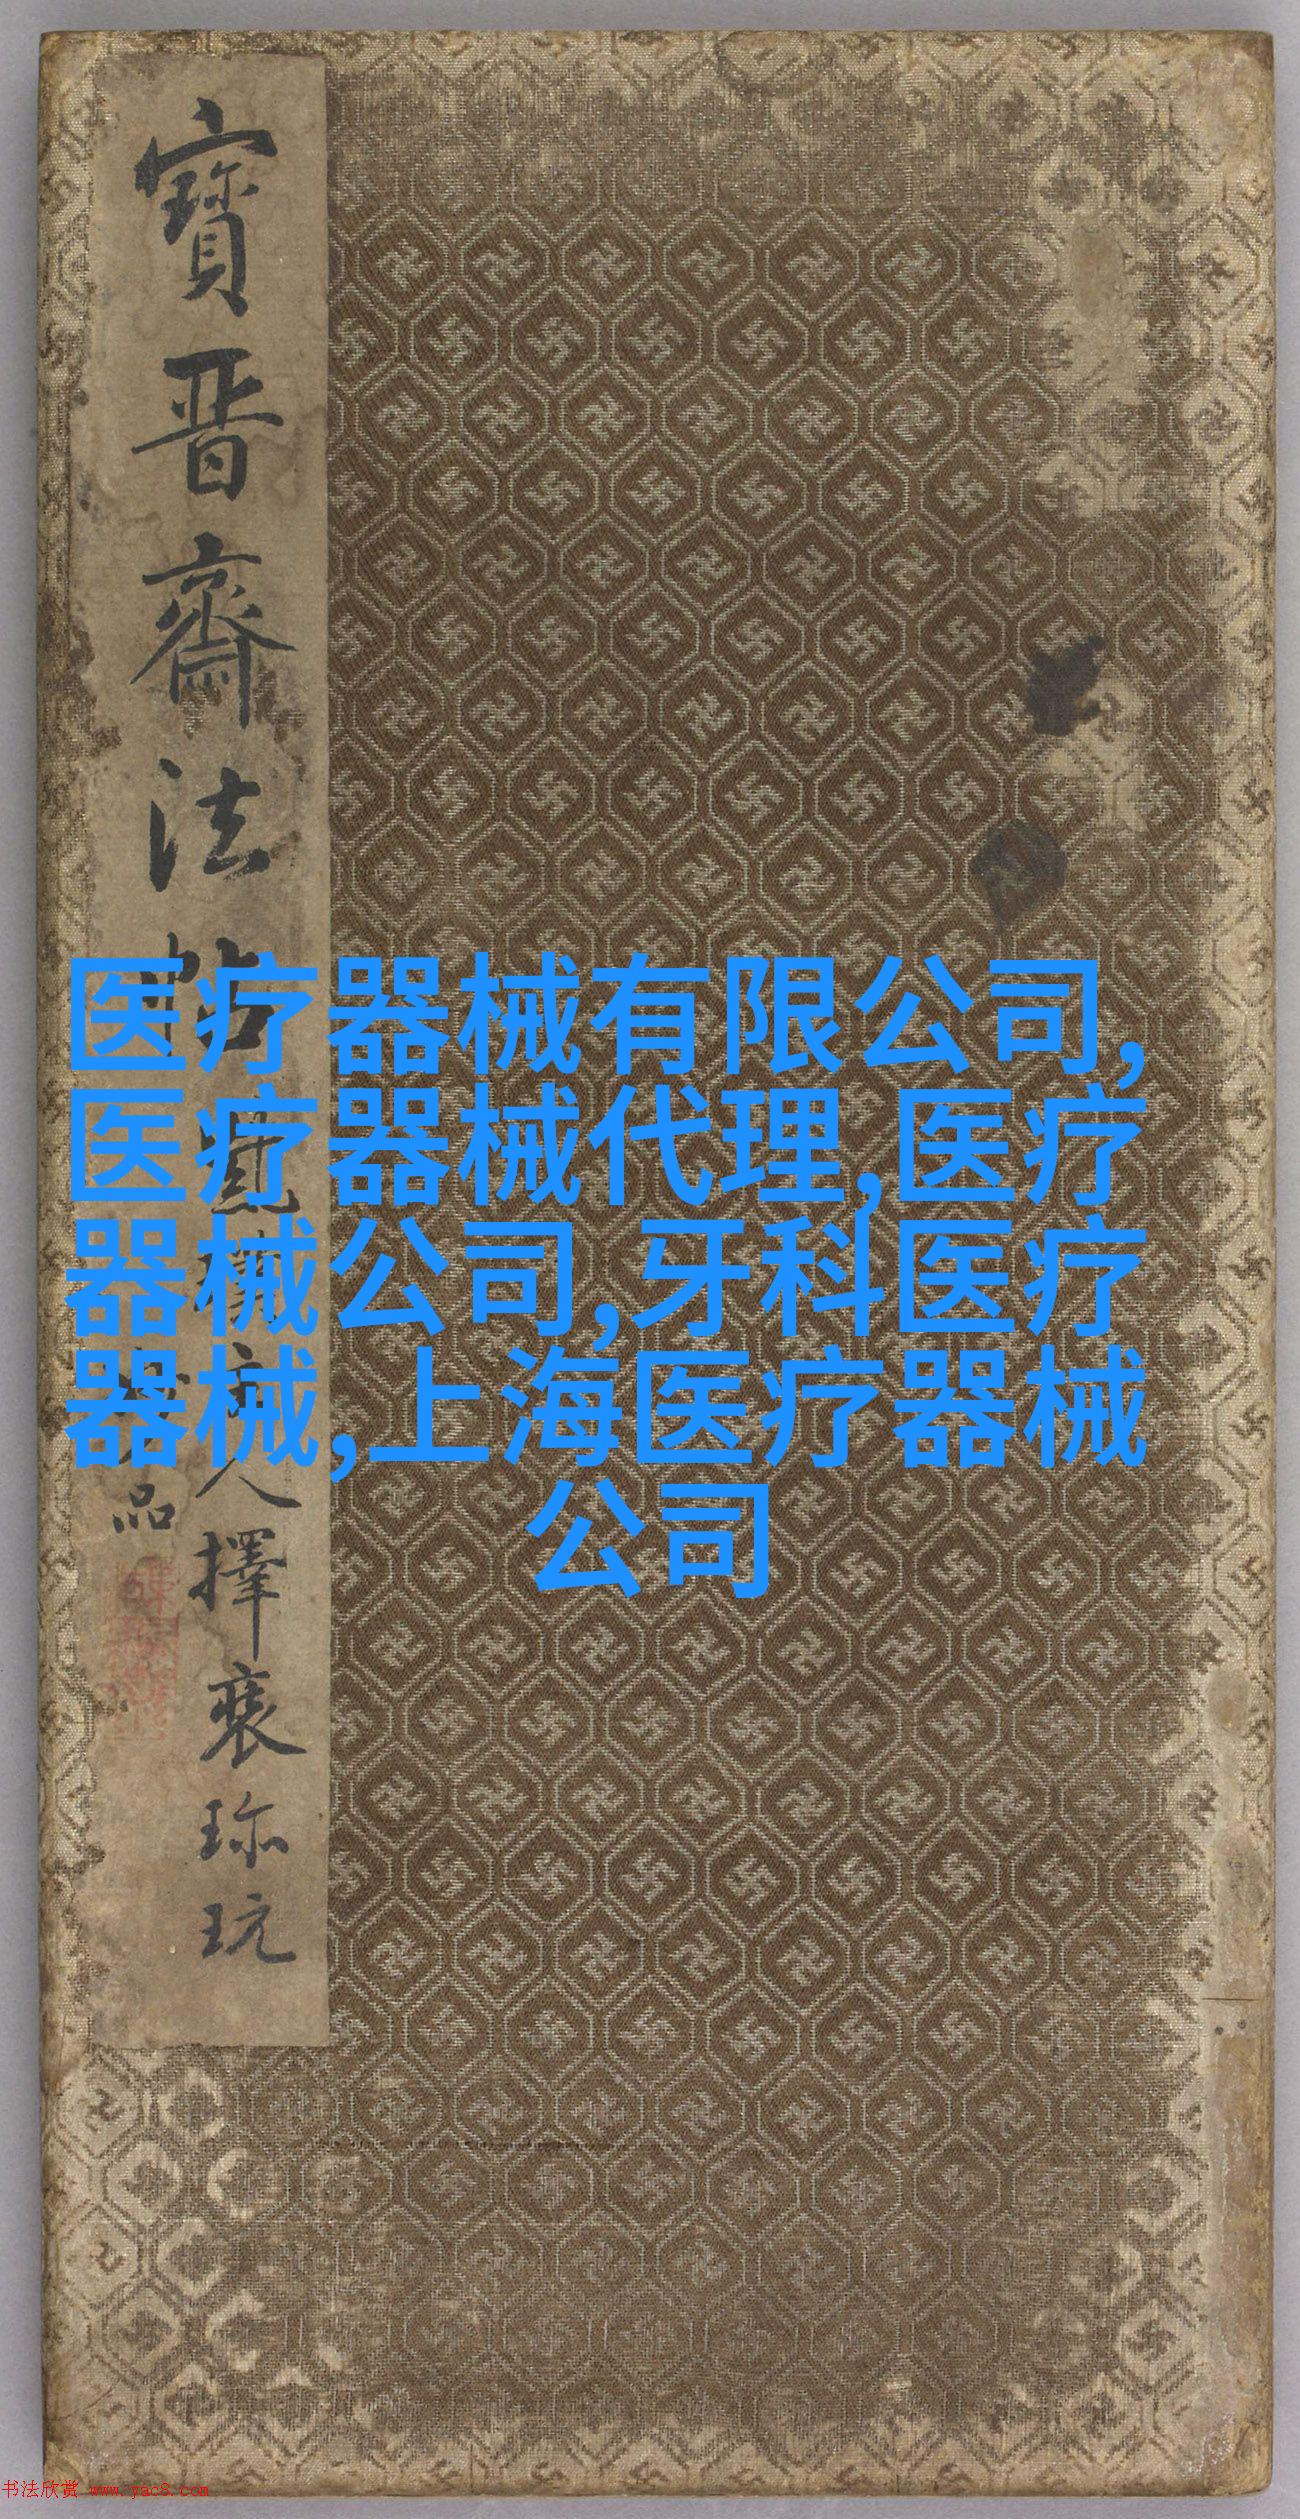 寶晋齋法帖
人擇襄珎玩
品
医疗器械有限公司,
医疗器械代理,医疗
器械公司,牙科医疗
器械,上海医疗器械
公司
书法欣赏 www.yac8.com